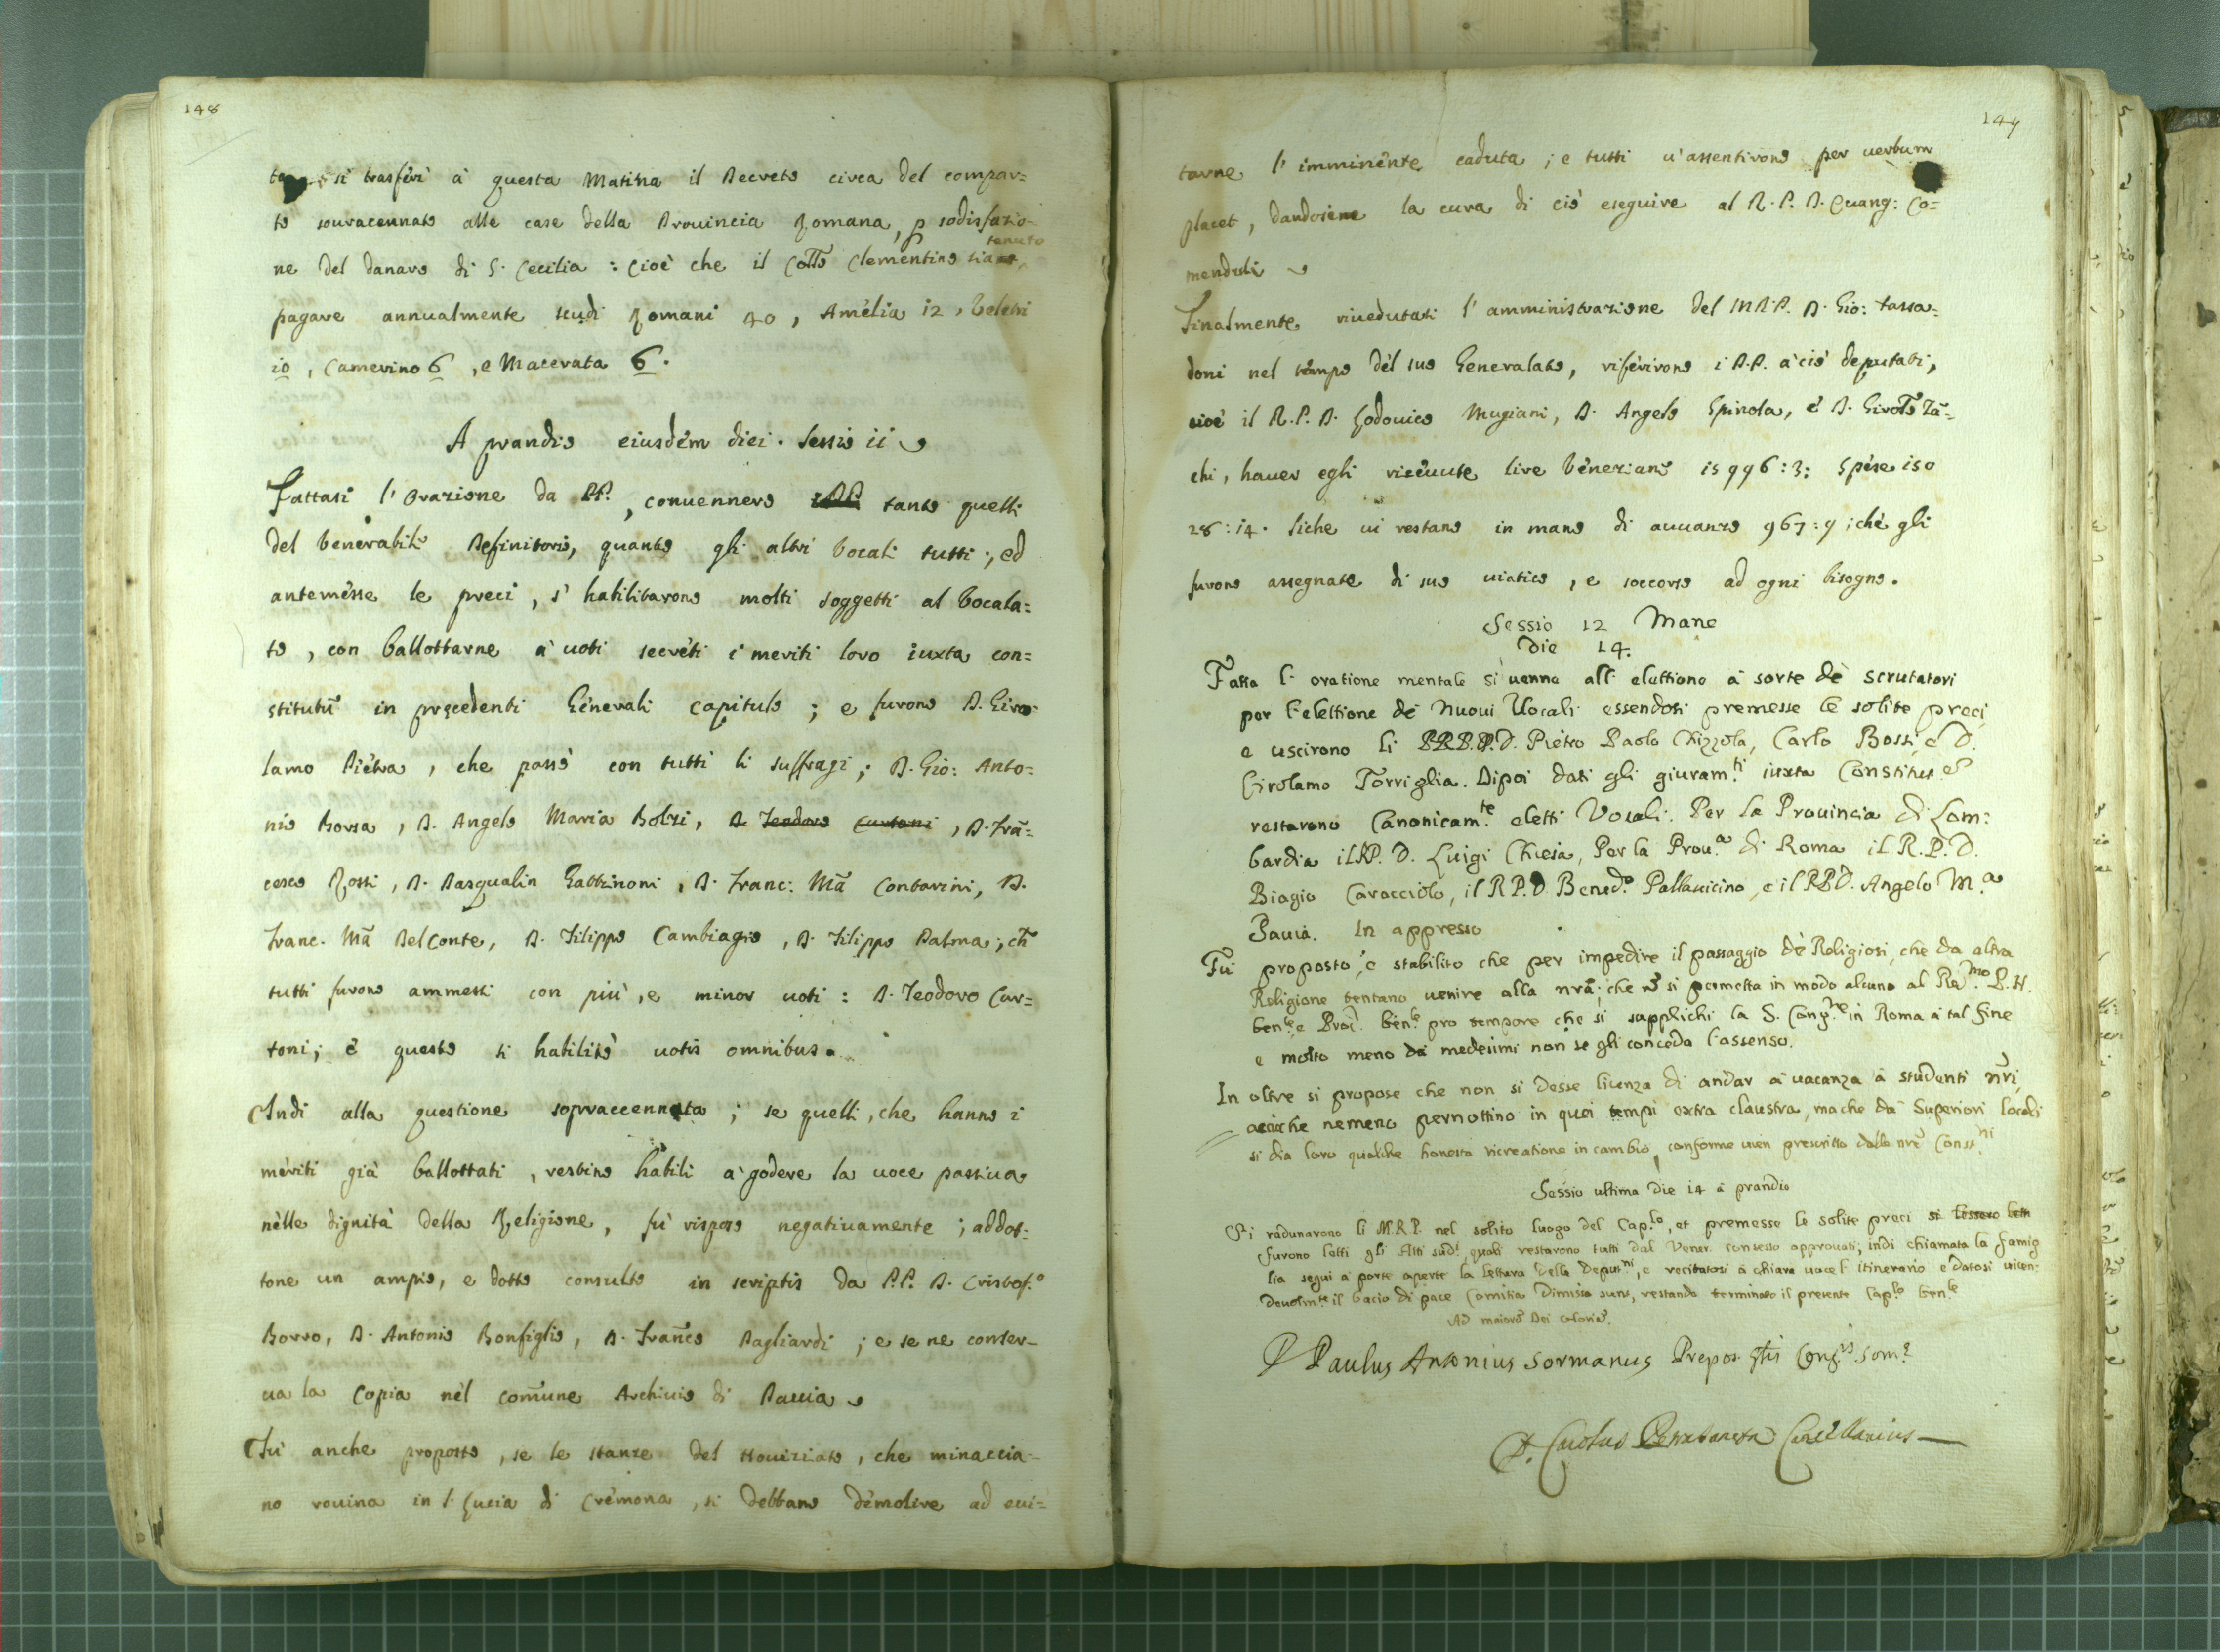 148
si trasferì à questa Matina il Decreto circa del compar=
to souracennato alle case della Prouincia Romana, p sodisfazio-
ne del danaro di S. Cecilia : cioè che il Collo Clementino sia tenuto
pagare annualmente scudi Romani 40, Amelia 12, Veletri
10, Camerino 6, e Macerata 6.
A prandio eiusdem diei. Sessio ii
Fattasi l'Orazione da PP., conuennero tanto quelli
del Venerabile Definitorio, quanto gli altri Vocali tutti; ed
antemesse le preci, s'habilitarono molti soggetti al Vocala=
to, con ballottarne à uoti secreti i meriti loro iuxta con=
stitutũ in prȩcedenti Generali Capitulo; e furono D. Giro=
lamo Pietra, che passò con tutti li suffragi; D. Gio: Anto=
nio Borsa, D. Angelo Maria Bolzi, D. Teodoro Curtoni, D. Frã=
cesco Rossi, D. Pasqualin Gattinoni, D. Franc: Mã Contarini, D.
Franc. Mã Del Conte, D. Filippo Cambiagio, D. Filippo Palma; ch̃
tutti furono ammessi con più, e minor uoti : D. Teodoro Cur=
toni; e questo si habilitò uotis omnibus.
Indi alla questione sopraccennata; se quelli, che hanno i
meriti già ballottati, restino habili à godere la uoce passiua
nelle dignità della Religione, fù risposo negatiuamente; addot=
tone un ampio, e dotto consulto in scriptis da P.P. D. Cristof.o
Borro, D. Antonio Bonfiglio, D. Frañco Pagliardi; e se ne conser-
ua la Copia nel com̃une Archiuio di Pauia
Fù anche proposto, se le stanze del Nouiziato, che minaccia-
no rouina in S. Lucia di Cremona, si debbano demolire ad eui=
149
tarne l'imminente caduta; e tutti u'assentirono per uerbum
placet, dandosene la cura di ciò eseguire al R. P. D. Euang: Co=
menduli
Finalmente riuedutasi l'amministrazione del M.R.P. D. Gio: Tassa=
doni nel tempo del suo Generalato, riferirono i P.P. à ciò deputati,
cioè il R. P. D. Lodouico Mugiani, D. Angelo Spinola, e D. Girolo Zã=
chi, hauer egli riceuute lire Veneziane 15996 : 3: spese 150
28 : 14. Siche ui restano in mano di auuanzo 967 : 9 ; che gli
furono assegnate di suo uiatico, e soccorso ad ogni bisogno.
Sessio 12 Mane
Die 14.
Fatta l'oratione mentale si uenne all'elettione à sorte dè scrutatori
per l'elettione de Nuoui Vocali essendosi premesse le solite preci
e uscirono li PP. D. Pietro Paolo Chizzola, Carlo Bossi, e D.
Girolamo Torriglia. Dipoi dati gli giuram.ti iuxta Constitut. e
restarono Canonicam.te eletti Vocali. Per la Prouincia di Lom:
bardia il R.P. D. Luigi Chiesa, Per la Prou.a di Roma il R. P. D.
Biagio Caracciolo, il R P. D Bened.o Pallauicino, e il R P D. Angelo M.a
Pauia. In appresso
Fù proposto, e stabilito che per impedire il passaggio dè Religiosi, che da altra
Religione tentano uenire alla nrã, che nõ si permetta in modo alcuno al Re.mo P. N.
Gen.le e Proc. Gen.le pro tempore che si supplichi la S. Cong.ne in Roma à tal fine
e molto meno da medesimi non se gli conceda l'assenso.
In oltre si propose che non si desse licenza di andar à uacanza à studenti nri
accioche nemeno pernottino in quei tempi extra claustra, ma che da Superiori locali
si dia loro qualche honesta ricreatione in cambio, conforme uien prescritto dalle nrẽ Const.ni
Sessio ultima Die 14 à prandio
Si radunarono li M.R.P. nel solito luogo del Cap.lo, et premesse le solite preci si lessero
furono letti gli Atti sud.i quali restarono tutti dal Vener. consesso approuati; indi chiamata la famig
lia segui à porte aperte la lettura delle Deput.ni, e recitatosi à chiara uoce l'itinerario e datosi uicen=
deuolm.te il bacio di pace Comitia Dimissa sunt, restando terminato il presente Cap.lo Gen.le
Ad maiorẽ Dei Gloriã.
D Paulus Antonius Sormanus Prepos. Cong.is Som.e
D. Carolus Cancellarius